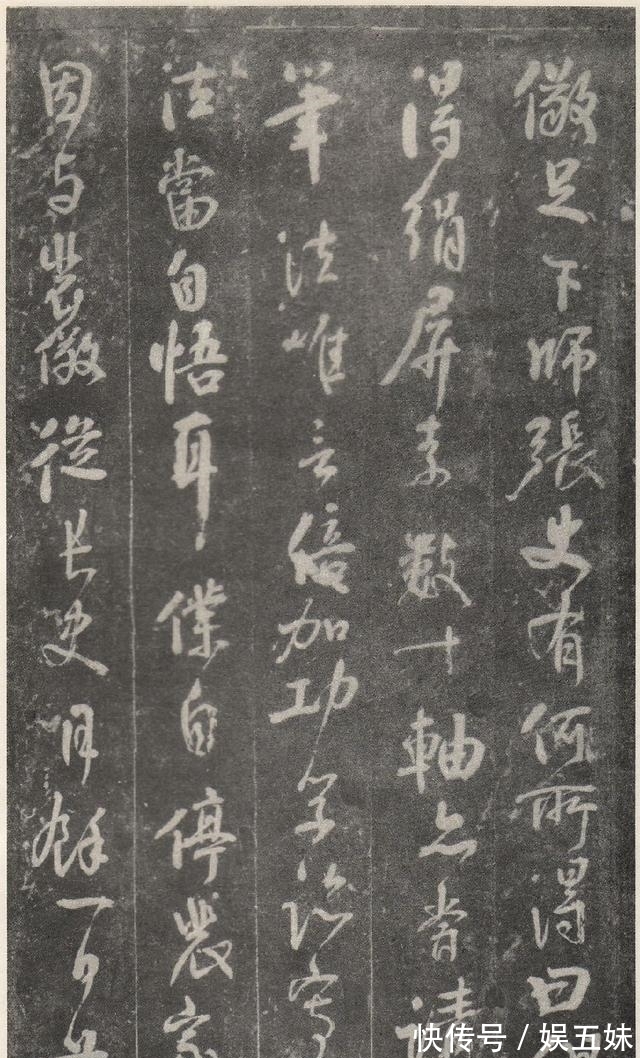 儆足下師張史有何所得曰
得絹屏素數十軸亦嘗請
筆法唯言倍加功学臨寫
法當自悟耳僕自停裴家
因与裴儆從長史餘一
快传号/娱五妹